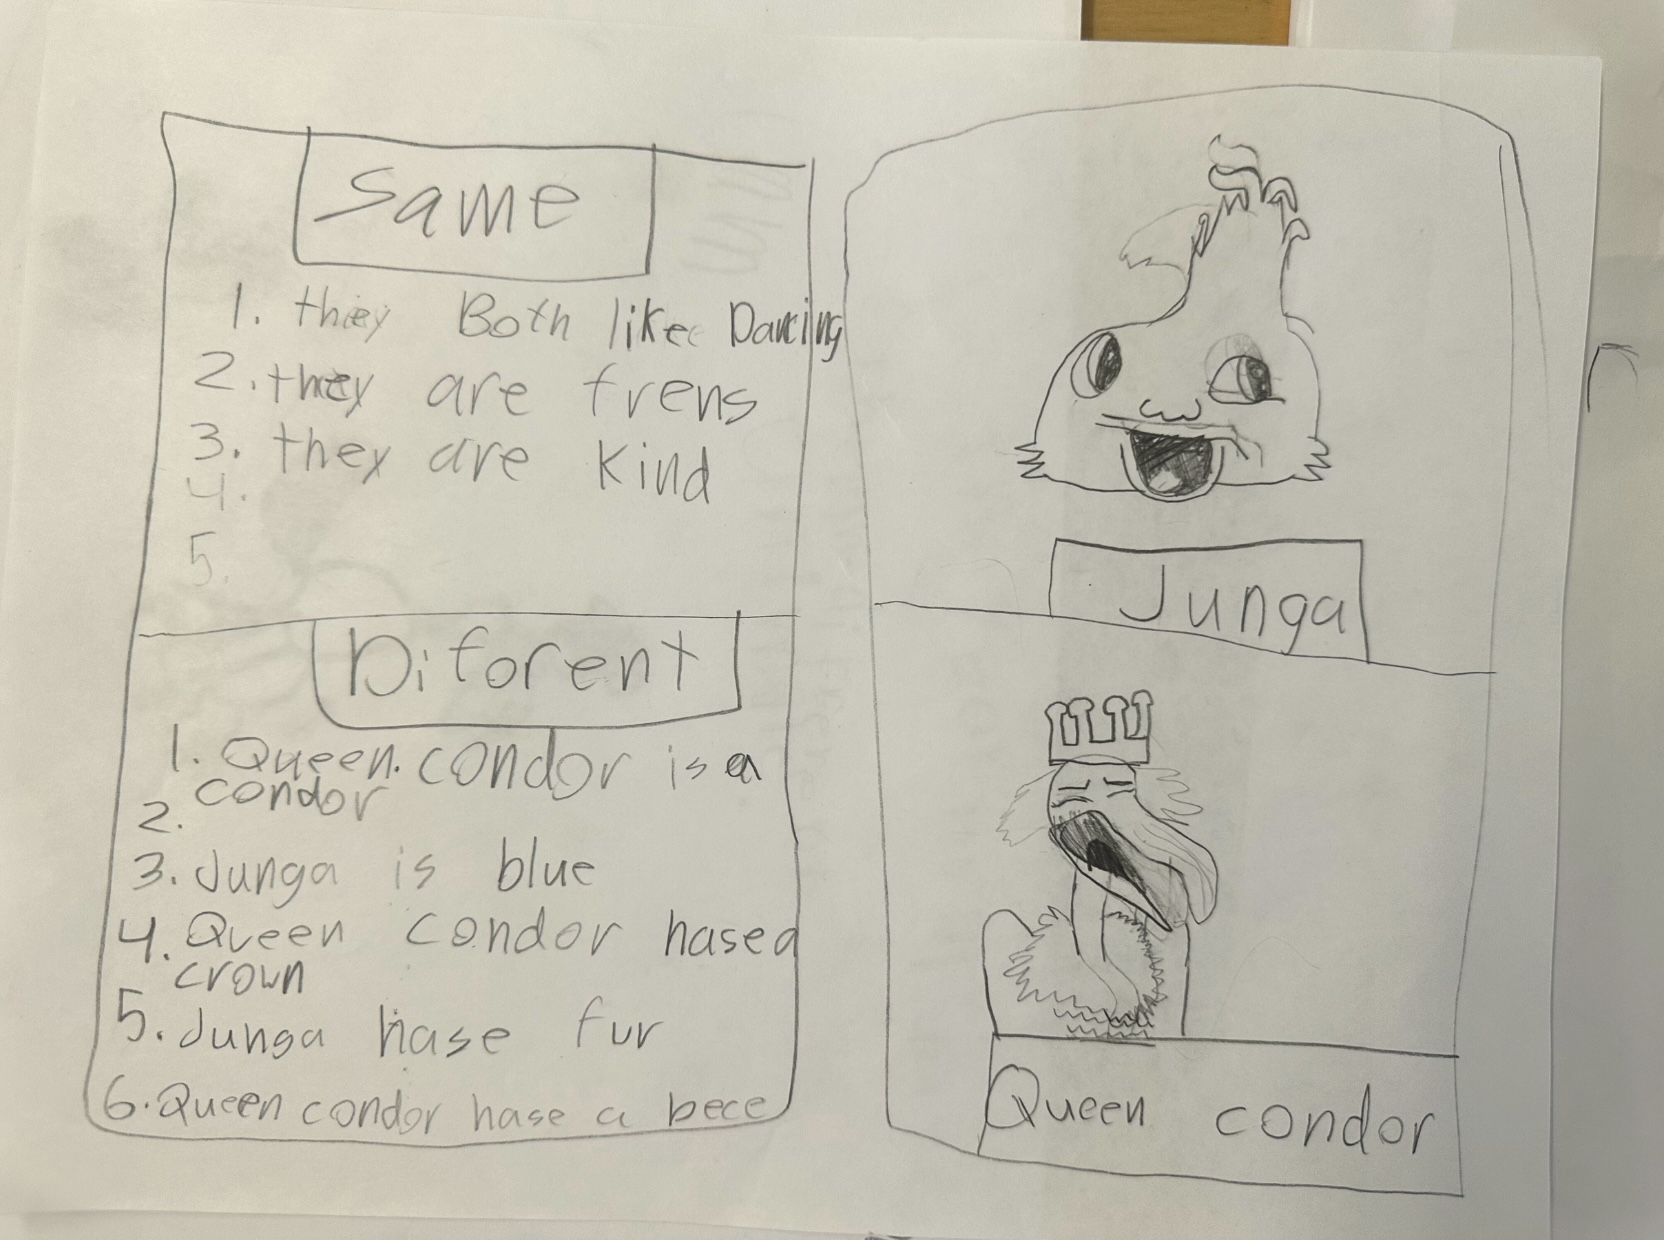 Same
1. they Both like Dancing
2. they are frens
3. they are kind
4.
5.
Diforent
1. Queen. condor is a
condor
2.
3. Junga is blue
4. Queen condor hase a
crown
5. Junga hase fur
6. Queen condor hase a bece
Junga
Queen condor